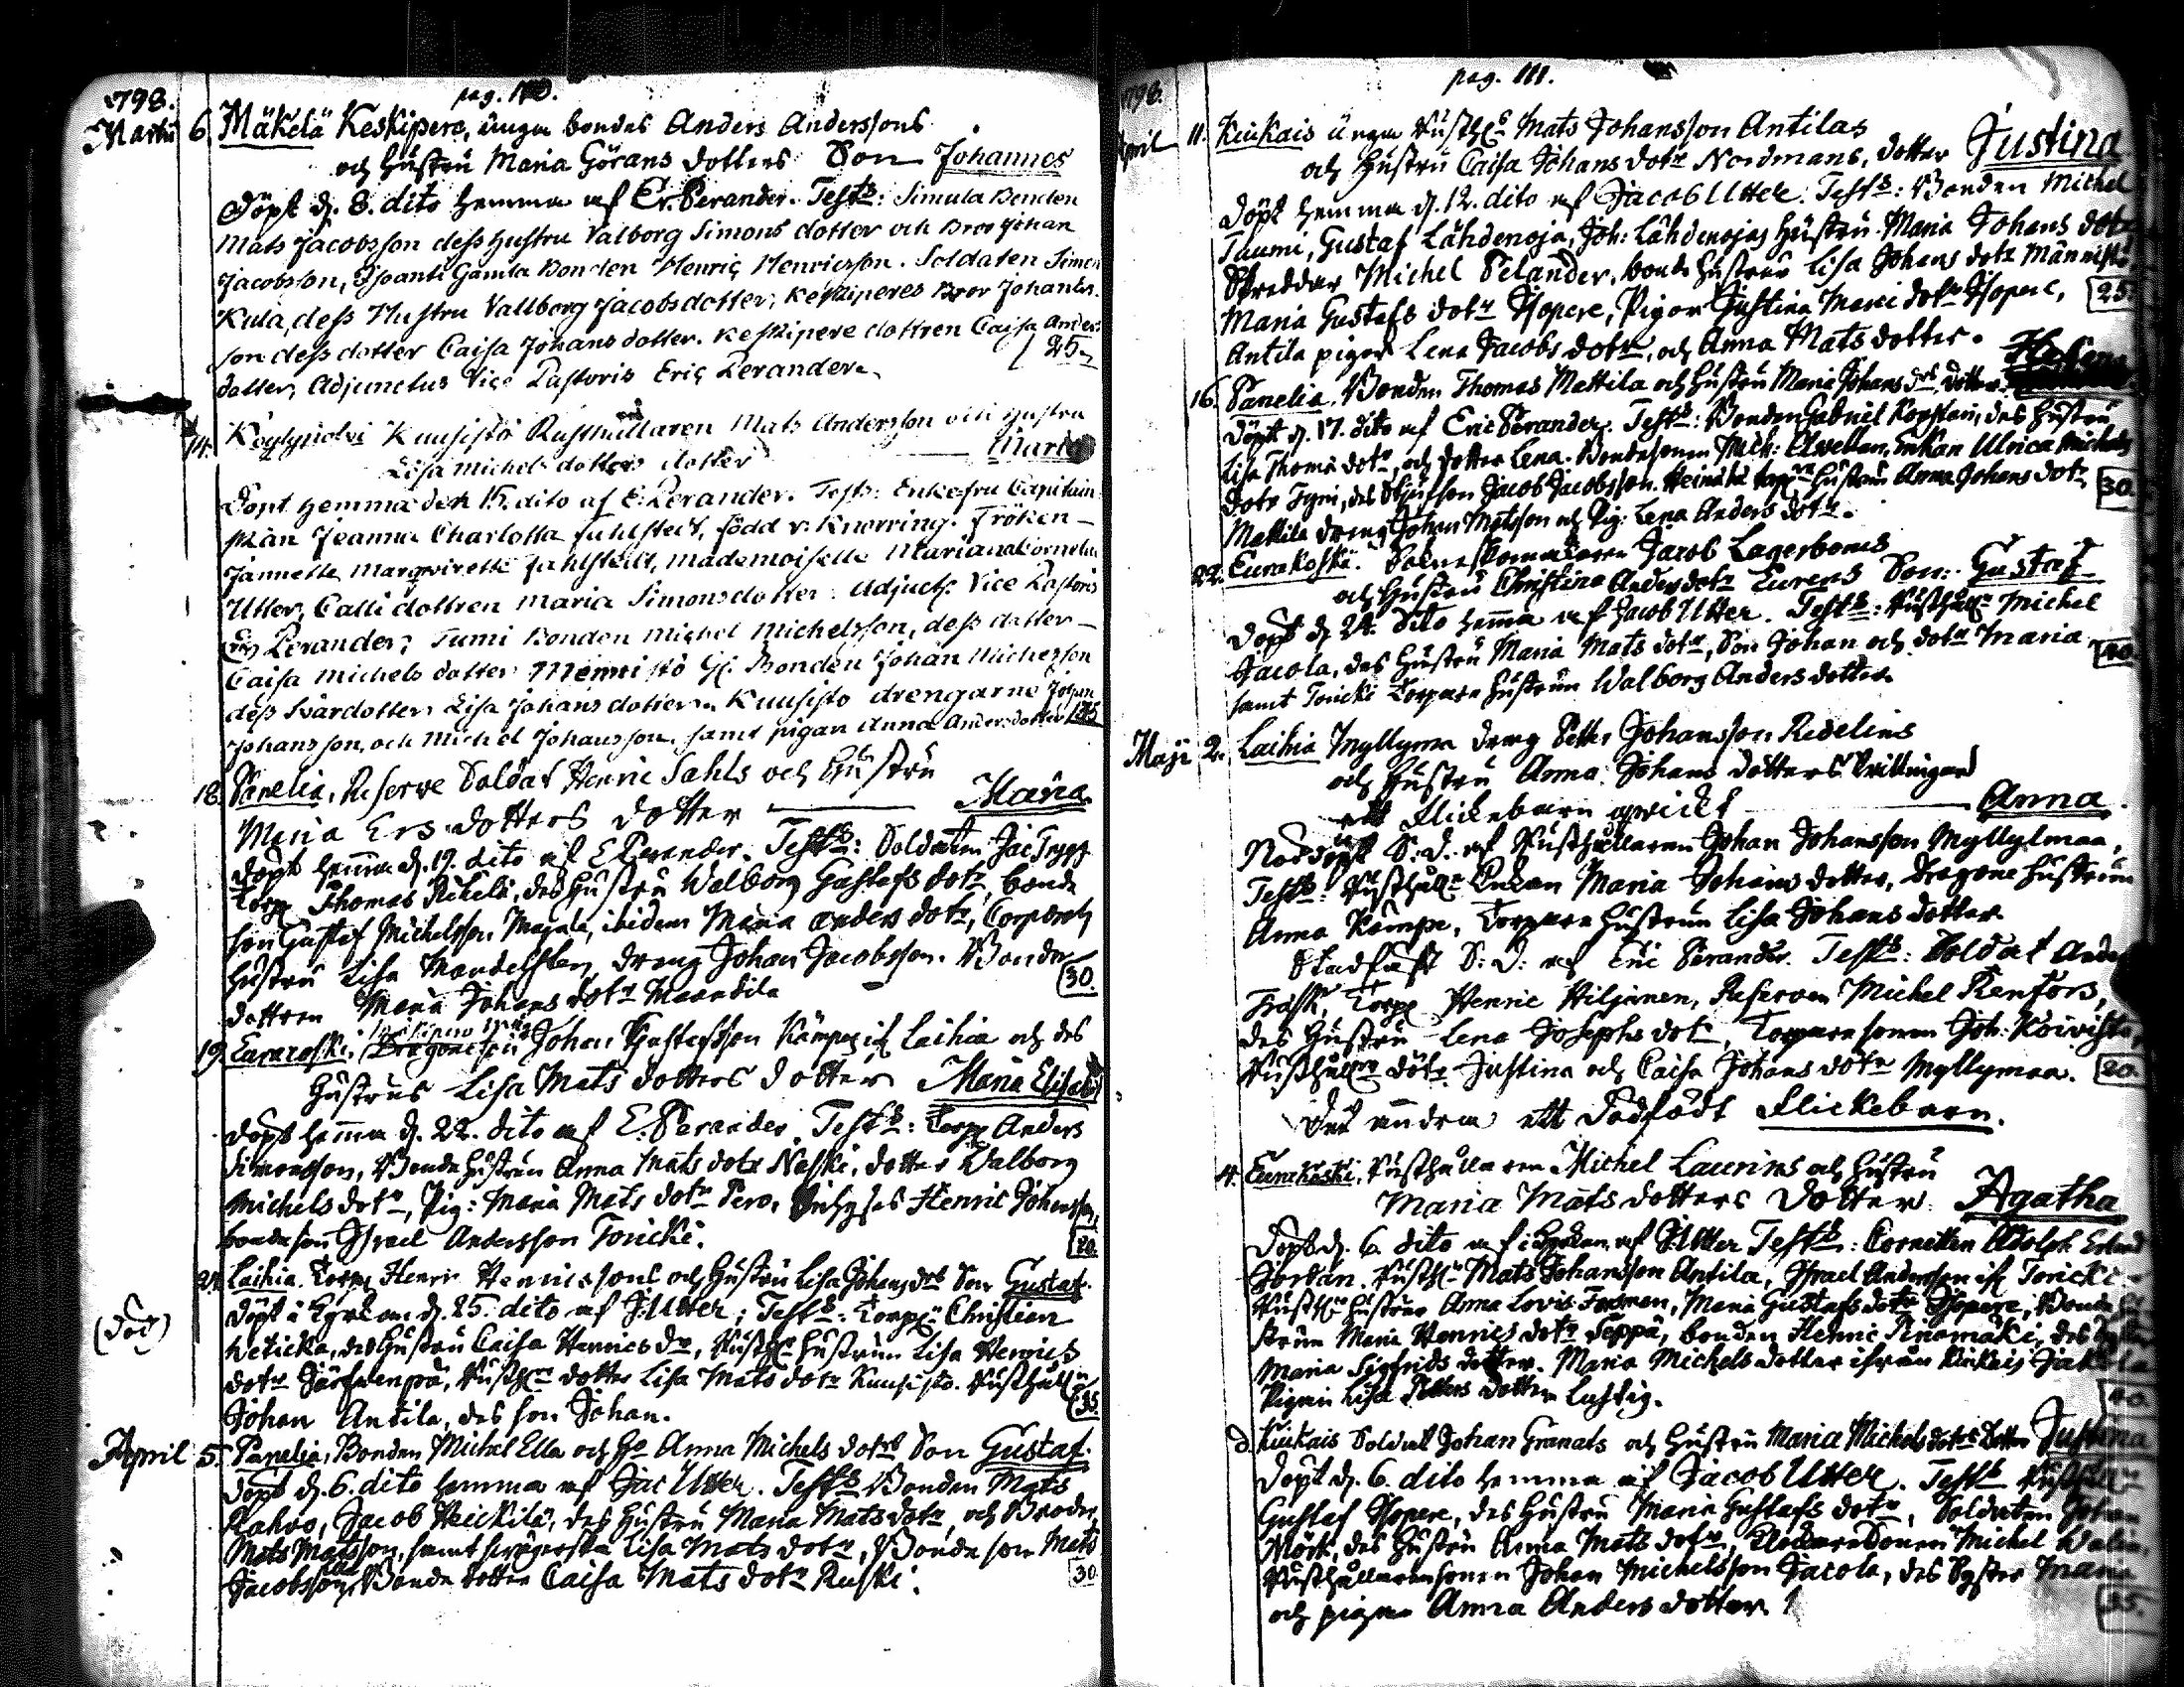 1798.
pag. 110.
Martii 6. Mäkelä Keskipere, unga bondes Anders Anderssons
och Hustru Maria Görans dotters Son Johannes
Döpt d. 8. dito hemma af Er. Perander. Test: Simula Bonden
Mats Jacobsson dess hustru Valborg Simons dotter och Bror Johan
Jacobsson, Gamla Bonden Henric Henricsson. Soldaten Simon
Kula, dess Hustru Vallborg Jacobsdotter, Keskiperes Bror Johan
son dess dotter Caisa Johans dotter. Keskipere dottren Caisa Anders
dotter, Adjunctus Vice Pastoris Eric Perander. 25.
14. Köylypolvi Kuusisto Rusthållaren Mats Andersson och hustru
Lisa Michels dotters dotter Maria
Döpt hemma den 15. dito af E. Perander. Test: Enkefru Capitain
skan Jeanna Charlotta Fahlstedt, född v. Knorring. Fröken
Jannette Margreirette Fahlstedt, Mademoiselle Mariana Cornelia
Utter, Calli dottren Maria Simonsdotter. Adjuct. Vice Pastoris
Eric Perander; Tumi Bonden Michel Michelsson, dess dotter
Caisa Michels dotter Männistö Bonden Johan Michelsson
dess Svärdotter Lisa Johans dotter. Kuusisto drengarne Johan
Johansson, och Michel Johansson, samt pigan Anna Andersdotter
18. Panelia, Reserve Soldat Henric Sahls och Hustru
Maria Ers dotters dotter Maria
Döpt hemma d. 19. dito af E Perander. Test: Soldaten Jac Trygg
Torp Thomas Rikilä, des Hustru Walborg Gustafs dotr, bonde
son Gustaf Michelsson Magala, ibidem Maria Anders dotr, Corporals
hustru Lisa Mandelsten, dreng Johan Jacobsson. Bonde
dottren Maria Johans dotr Maandila 30.
19. Euraåski, Johan Gustafsson Kämpes if Laihia och des
Hustrus Lisa Mats dotters dotter Maria Elisab
Döpt hemma d. 22. dito af E. Perander. Test: Torp Anders
Simonsson, Bonde hustrun Anna Mats dotr Naski, dotter Walborg
Michels dotr, Pig: Maria Mats dotr Pero, Henric Johansson,
bondeson Israel Andersson Toricki. 20.
Laihia. Torp Henric Henricssons och Hustru Lisa Johans drs Son Gustaf.
(död) Döpt i Kyrkan d. 25. dito af J. Utter; Test: Torp Christian
Weticka, des Hustru Caisa Henrics dr, Rusth hustrun Lisa Henrics
dotr Järfwenpä, Rusth dotter Lisa Mats dotr Kuusisto. Rusthåll
Johan Antila, des son Johan. 35.
April 5. Panelia, Bonden Michel Ella och Ho Anna Michels dotrs Son Gustaf.
Döpt d. 6. dito hemma af Jac Utter. Test Bonden Mats
Rahvo, Jacob Heickilä, des Hustru Maria Mats dotr, och Broder
Mats Matsson, samt swägerska Lisa Mats dotr, Bonde son Mats
Jacobsson Ella, Bonde dotter Caisa Mats dotr Ruski. 30
1798.
pag. 111.
April 11. Kiukais unga Rusth Mats Johansson Antilas
och Hustru Caisa Johans dotr Nordmans, dotter Justina
Döpt hemma d. 12. dito af Jacob Utter. Test: Bonden Michel
Taumi, Gustaf Lähdenoja, Joh: Lähdenojas Hustru Maria Johans dotr
Skreddar Michel Selander, bonde hustrun Lisa Johans dotr Männistö
Maria Gustafs dotr Isopere, Pigor Justina Marci dotr Isopere, 25.
Antila pigor Lena Jacobs dotr, och Anna Mats dotter.
16. Panelia. Bonden Thomas Mattila och Hustru Maria Johans drs dotter Helena
Döpt d. 17. dito af Eric Perander. Test: Bonden Gabriel, des Hustru
Lisa Thomæ dotr, och dotter Lena. Bondesonen Mich:, Enkan Ulrica Michels
dotr Tyni, des Stjufson Jacob Jacobsson. Heinikä torp hustrun Anna Johans dotr 30.
Mattila dreng Johan Matsson och Pig: Lena Anders dotr.
22. Eurakoski. Jacob Lagerboms
och Hustru Christina Anders dotr Eurens Son: Gustaf
Döpt d. 24. dito hemma af Jacob Utter. Test: Rusthåll Michel
Jacola, des Hustru Maria Mats dotr, Son Johan och dotr Maria
samt Toricki Torpare hustrun Walborg Anders dotter. 40.
Maji 2. Laihia Myllymaa dreng Petter Johansson Redelius
och Hustru Anna Johans dotters twillingar
ett Flickebarn Anna
Nöddöpt S. D. af Rusthållaren Johan Johansson Myllylmaa,
Test: Rusthåll Enkan Maria Johans dotter, Dragone hustrun
Anna Kämpe, Torpare hustrun Lisa Johans dotter
Stadfäst S: D: af Eric Perander. Test: Soldat Anders
Frask, Torp Henric Hiljanen, Reserven Michel Renfors,
des Hustru Lena Josephs dotr, Torpare sonen Joh: Koivisto,
Rusthåll dotr Justina och Caisa Johans dotr Myllymaa. 20.
Det andra ett dödfödt Flickebarn.
4. Eurakoski, Rusthållaren Michel Laurins och Hustru
Maria Mats dotters dotter Agatha
Döpt d. 6. dito i Kyrkan af J. Utter Test: Cornetten Adolph Erland
Jordan. Rusth Mats Johansson Antila, Israel Andersson if Toricki
Rusth hustrun Anna Lovis Forsman, Maria Gustafs dotr Isopere, Bonde hu
strun Maria Henrics dotr Seppä, bonden Henric Rinomäki, des hustru
Maria Sigfrids dotter. Maria Michels dotter ifrån Kiukais Jakola
Pigan Lisa Petters dotter Lustig. 40
d. Kiukais Soldat Johan Granats och Hustru Maria Michels dotrs dotter Justina
Döpt d. 6. dito hemma af Jacob Utter. Test Rusthållar
Gustaf Isopere, des Hustru Maria Gustafs dotr, Soldaten Johan
Mörk, des Hustru Anna Mats dotr, Michel Walin,
Rusthållaresonen Johan Michelsson Jacola, des Syster Maria
och pigan Anna Anders dotter. 35.